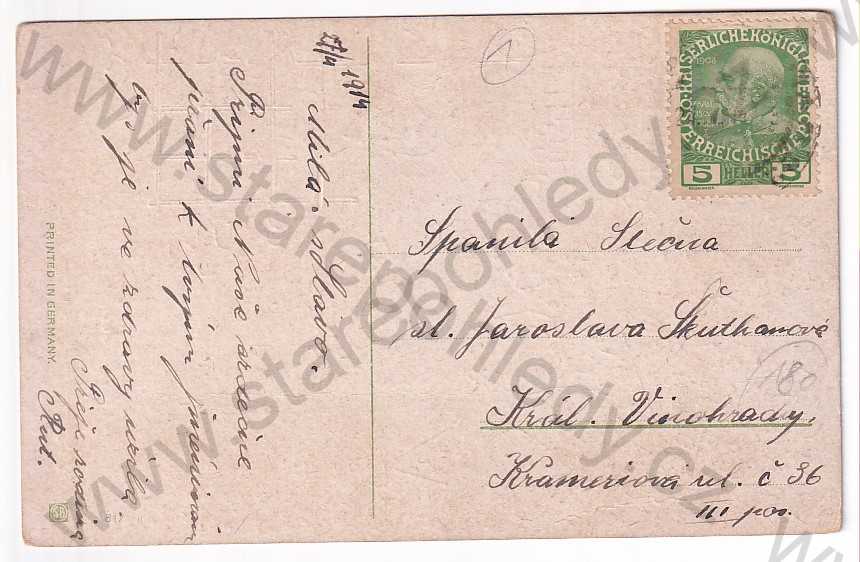 27/4 1914
Milá Slávo.
Přijmi Naše srdečné
přání k tvým jmeninám
by je ve zdraví užila.
Přeje rodina
Rut.
PRINTED IN GERMANY.
1
KAISERLICHEKÖNIGLICHE
ÖSTERREICHISCHE
1908
5 HELLER 5
Spanilá Slečna
sl. Jaroslava Škuthanová
Král. Vinohrady,
Krameriova ul. č 36
III pos.
180
www.starepohledy.cz